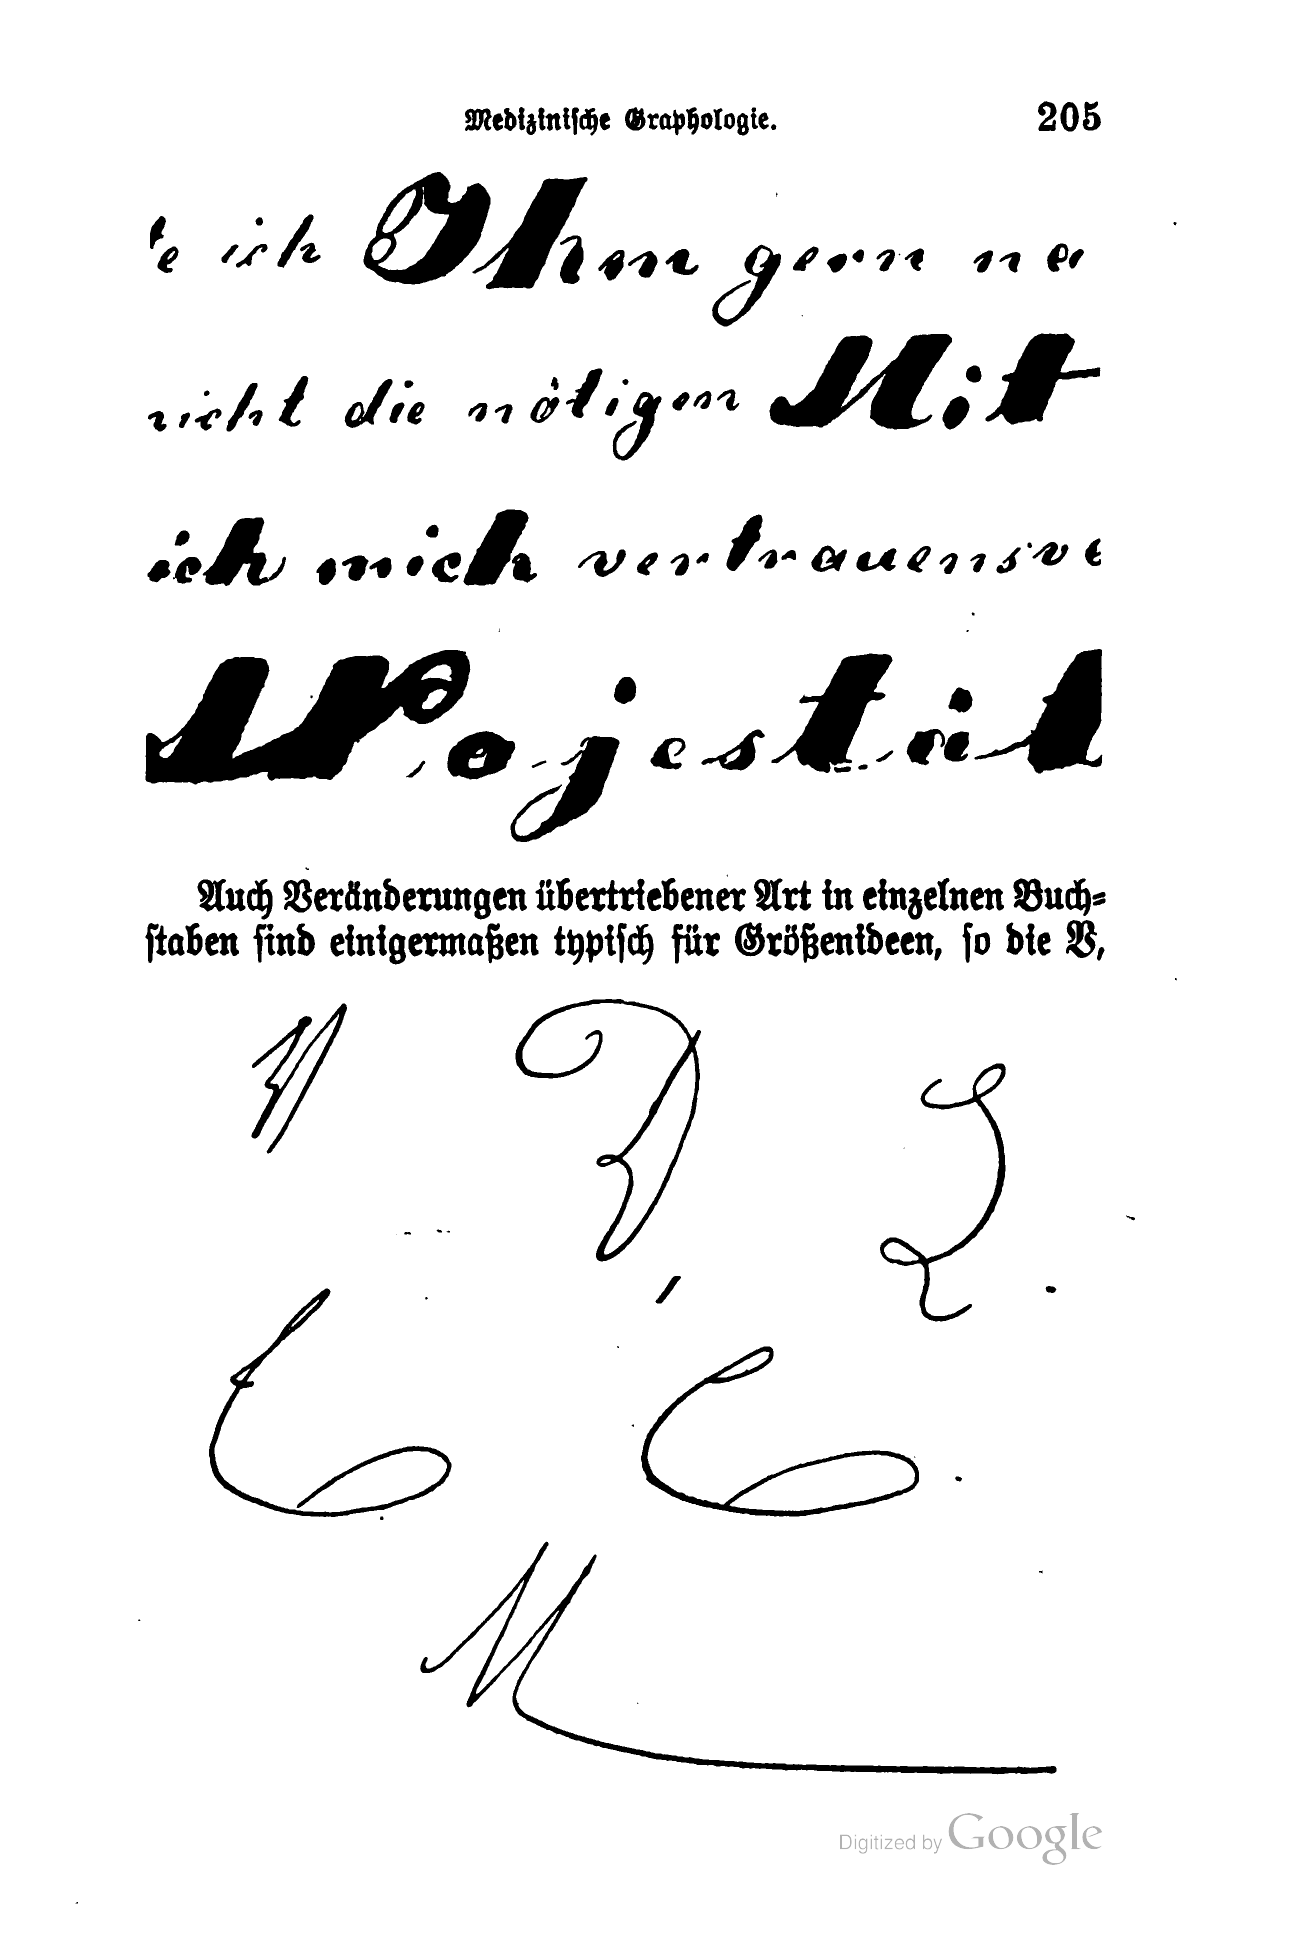 Medizinische Graphologie. 205
e ich Ihm gern ne
nicht die nötigen Mit
ich mich vertrauensvo
Majestät
Auch Veränderungen übertriebener Art in einzelnen Buch=
staben sind einigermaßen typisch für Größenideen, so die V,
M
Digitized by Google